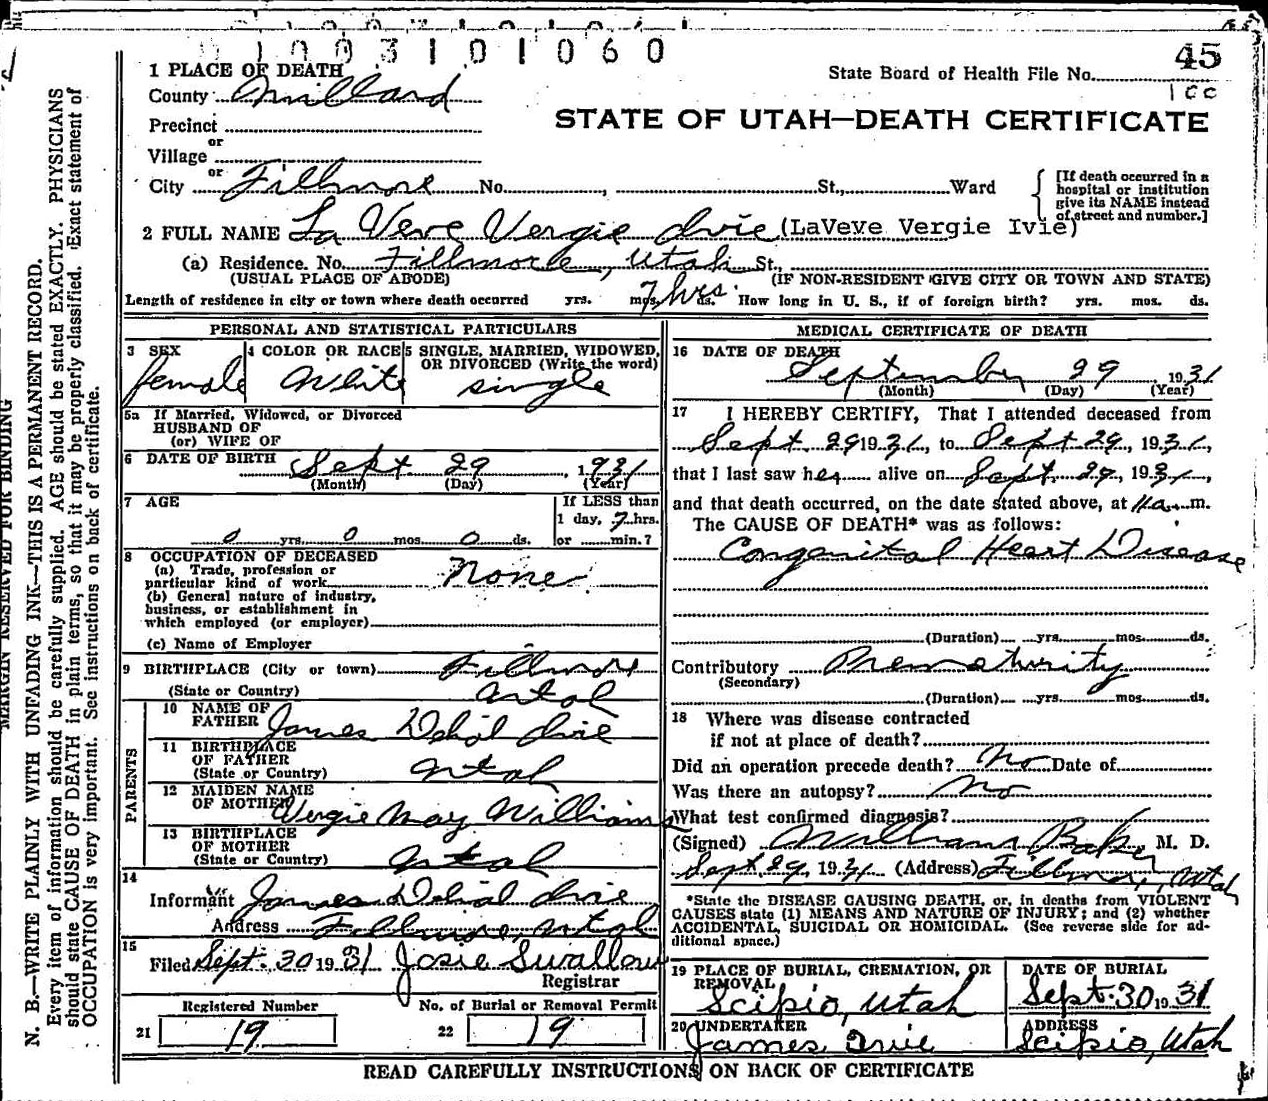 1003101060
45
1 PLACE OF DEATH
State Board of Health File No.
County Millard
1 c c
STATE OF UTAH—DEATH CERTIFICATE
Precinct
or
Village
or
City Fillmore No. , St., Ward
[If death occurred in a hospital or institution give its NAME instead of street and number.]
2 FULL NAME La Veve Vergie Ivie (LaVeve Vergie Ivie)
(a) Residence. No. Fillmore, Utah St.,
(USUAL PLACE OF ABODE) (IF NON-RESIDENT GIVE CITY OR TOWN AND STATE)
Length of residence in city or town where death occurred yrs. mos. 7 hrs. ds. How long in U. S., if of foreign birth? yrs. mos. ds.
PERSONAL AND STATISTICAL PARTICULARS
3 SEX
female
4 COLOR OR RACE
White
5 SINGLE, MARRIED, WIDOWED, OR DIVORCED (Write the word)
single
5a If Married, Widowed, or Divorced
HUSBAND OF
(or) WIFE OF
6 DATE OF BIRTH Sept 29, 1931
(Month) (Day) (Year)
7 AGE
0 yrs. 0 mos. 0 ds.
If LESS than
1 day, 7 hrs.
or min.?
8 OCCUPATION OF DECEASED
(a) Trade, profession or
particular kind of work None
(b) General nature of industry,
business, or establishment in
which employed (or employer)
(c) Name of Employer
9 BIRTHPLACE (City or town) Fillmore
(State or Country) Utah
PARENTS
10 NAME OF FATHER James Delial Ivie
11 BIRTHPLACE OF FATHER
(State or Country) Utah
12 MAIDEN NAME OF MOTHER Vergie May Williams
13 BIRTHPLACE OF MOTHER
(State or Country) Utah
14
Informant James Delial Ivie
Address Fillmore, Utah
15
Filed Sept. 30 1931 Josie Swallow
Registrar
Registered Number
21 19
No. of Burial or Removal Permit
22 19
MEDICAL CERTIFICATE OF DEATH
16 DATE OF DEATH
September 29 1931
(Month) (Day) (Year)
17 I HEREBY CERTIFY, That I attended deceased from
Sept. 29 1931, to Sept 29, 1931,
that I last saw her alive on Sept. 29, 1931,
and that death occurred, on the date stated above, at 11a.m.
The CAUSE OF DEATH* was as follows:
Congenital Heart Disease
(Duration) yrs. mos. ds.
Contributory Prematurity
(Secondary)
(Duration) yrs. mos. ds.
18 Where was disease contracted
if not at place of death?
Did an operation precede death? No Date of
Was there an autopsy? No
What test confirmed diagnosis?
(Signed) William Baker M. D.
Sept. 29, 1931 (Address) Fillmore, Utah
*State the DISEASE CAUSING DEATH, or, in deaths from VIOLENT
CAUSES state (1) MEANS AND NATURE OF INJURY; and (2) whether
ACCIDENTAL, SUICIDAL OR HOMICIDAL. (See reverse side for ad-
ditional space.)
19 PLACE OF BURIAL, CREMATION, OR REMOVAL
Scipio, Utah
DATE OF BURIAL
Sept. 30 1931
20 UNDERTAKER
James Ivie
ADDRESS
Scipio, Utah
READ CAREFULLY INSTRUCTIONS ON BACK OF CERTIFICATE
MARGIN RESERVED FOR BINDING
N. B.—WRITE PLAINLY WITH UNFADING INK—THIS IS A PERMANENT RECORD.
Every item of information should be carefully supplied. AGE should be stated EXACTLY. PHYSICIANS
should state CAUSE OF DEATH in plain terms, so that it may be properly classified. Exact statement of
OCCUPATION is very important. See instructions on back of certificate.